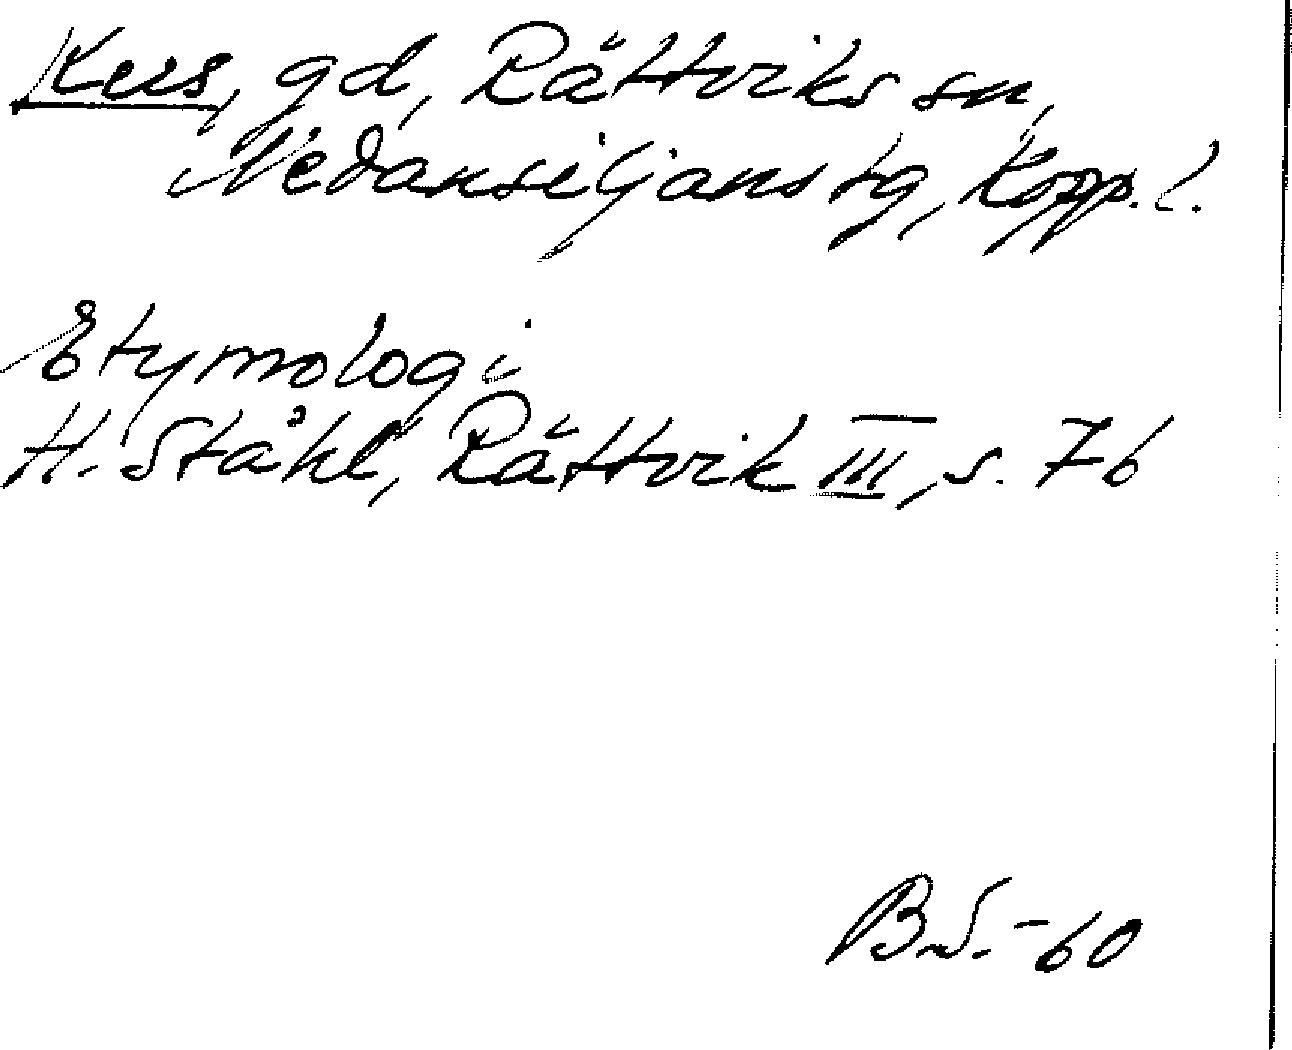 Kus, gd, Rättviks sn,
Nedansiljans tg, Kopp. l.
Etymologi
H. Ståhl, Rättvik III, s. 76
B.S. -60